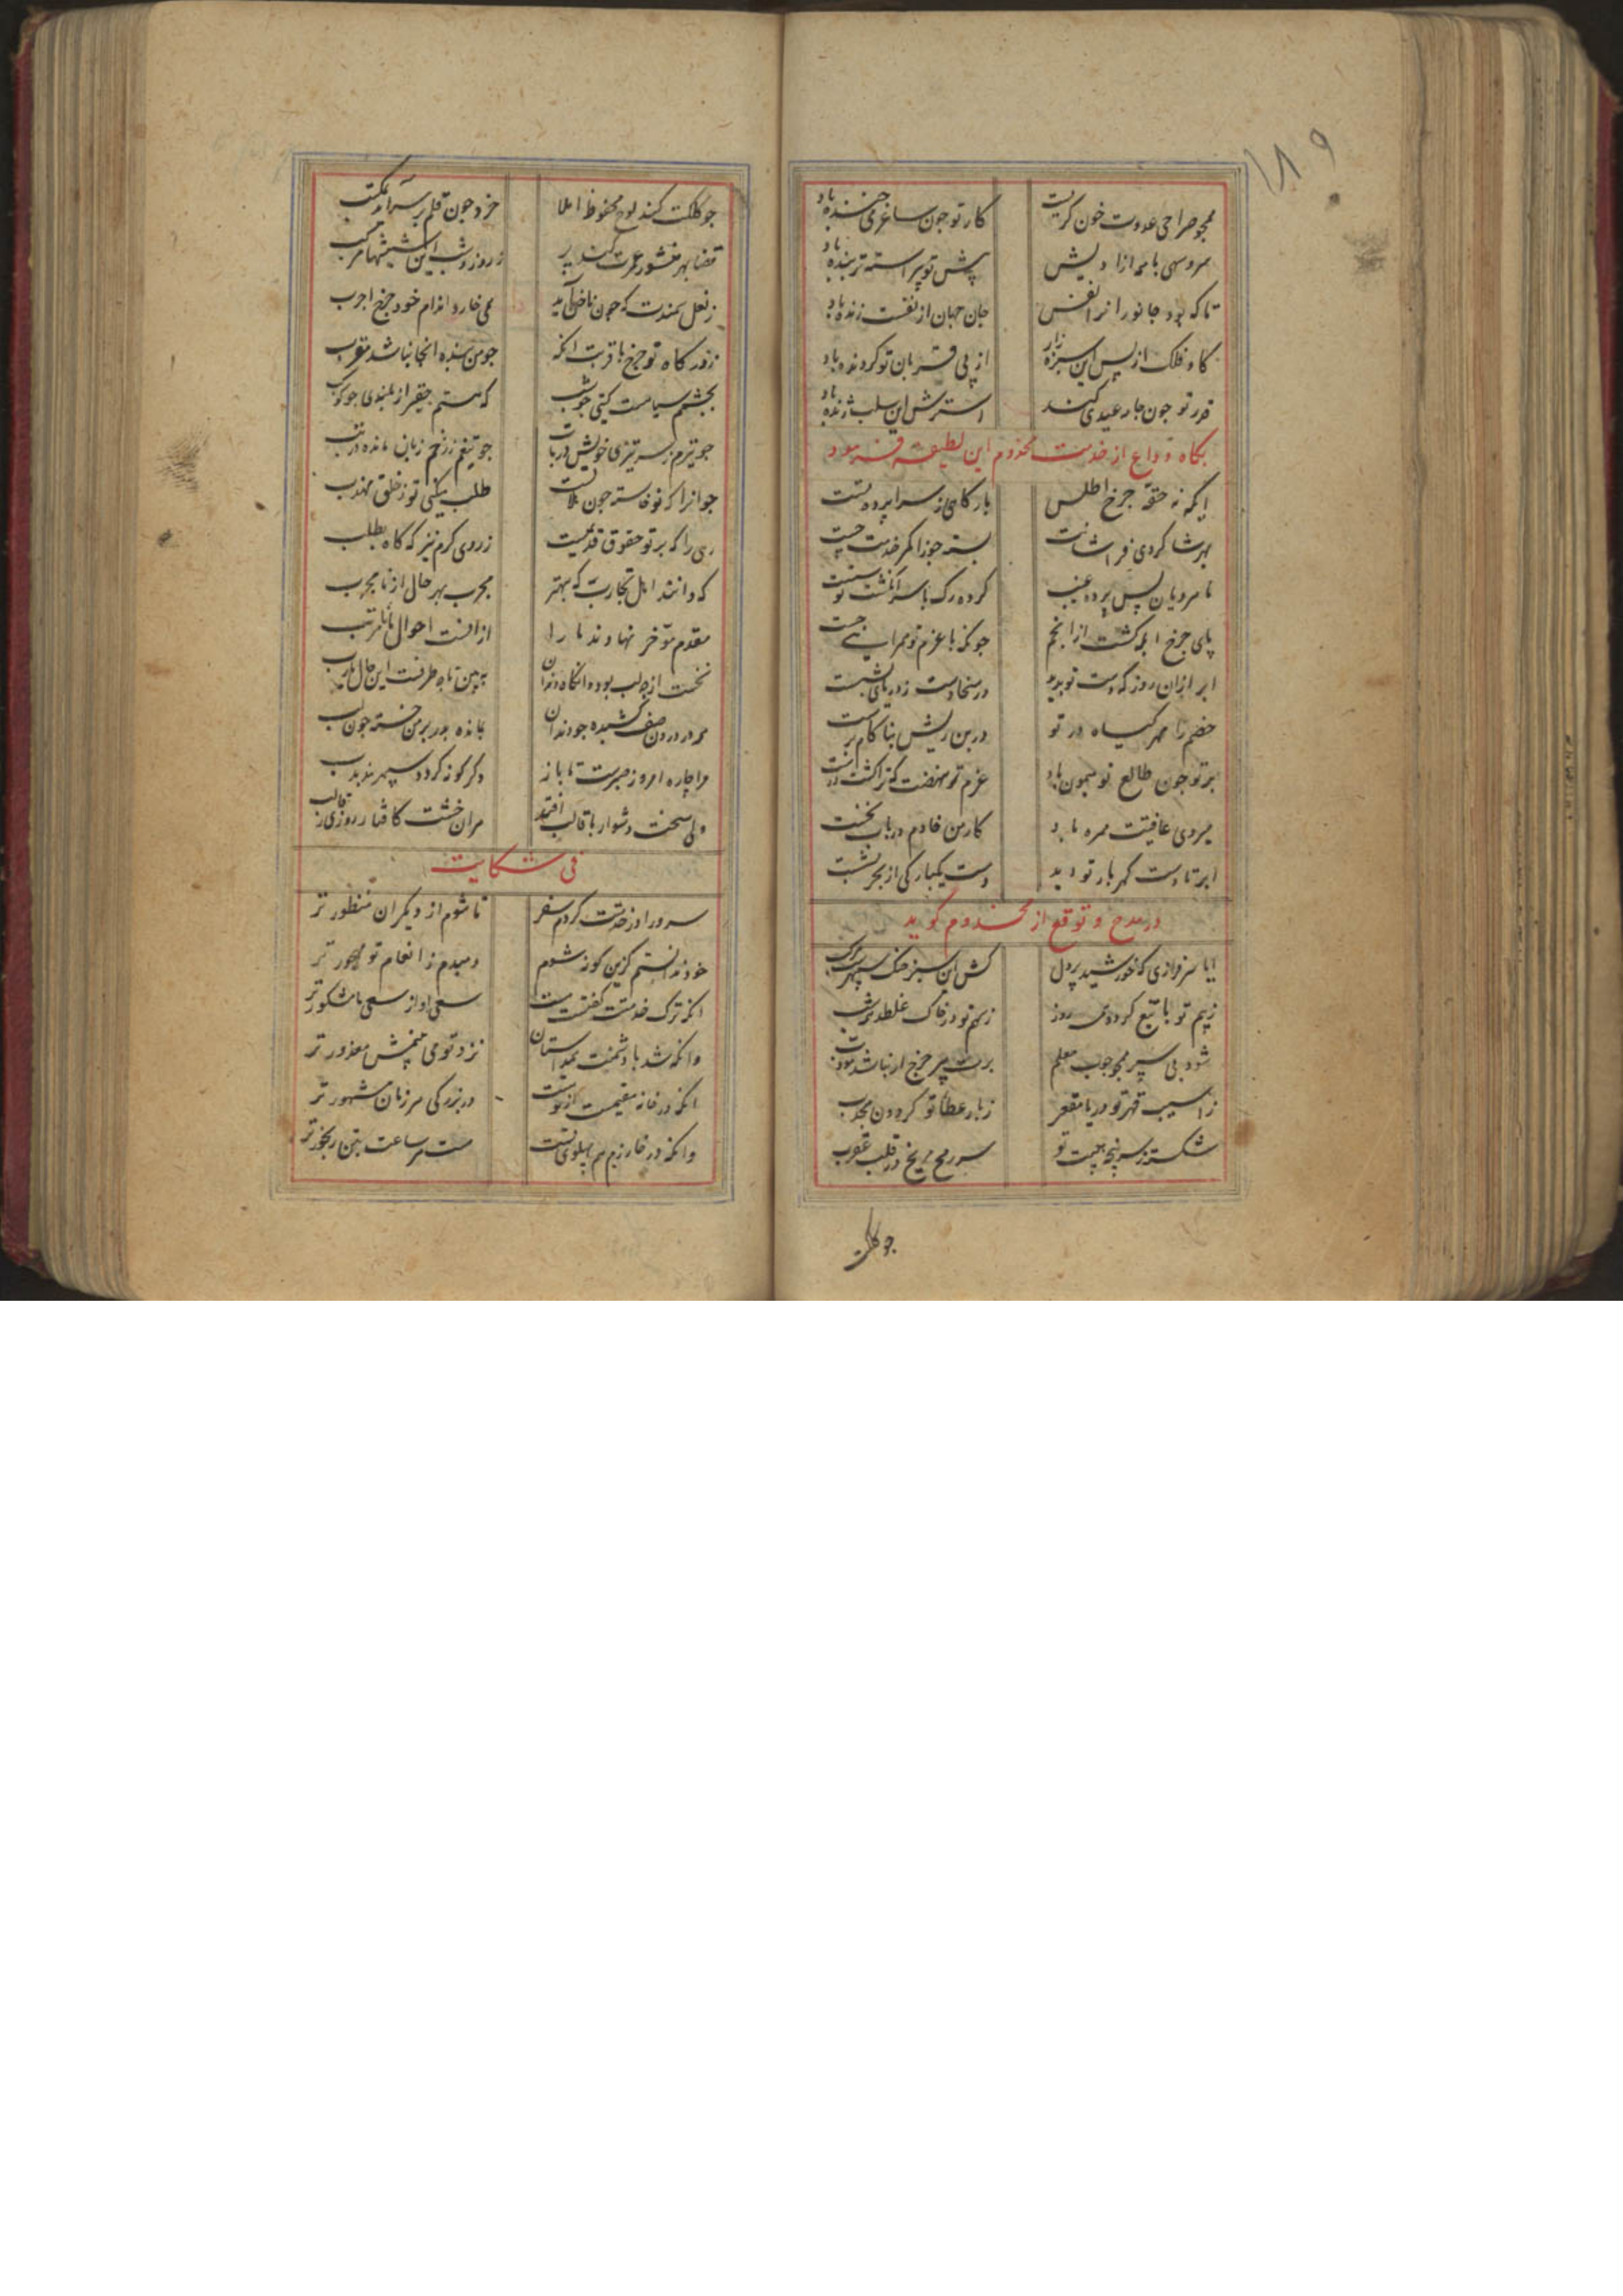 ۱۸۹
همجو صراحی عدوت خون کریست کار تو جون ساغر می خنده باد
سروسهی با همه ازادیش پیش تو پیراسته تر بنده باد
تا که بود جانور انرا نفس جان جهان از نفست زنده باد
کاو فلک از پس این سبزه زار از پی قربان تو کردنده باد
قدر تو جون جار عیدی کند استرش این سلب ژنده باد
بکاه وداع از خدمت مخذوم این لطیفه فرمود
ایکه نه حقه جرخ اطلس بارکاهی ز سرابرده تست
بهر شاکردی فراشانت بسته جوزا کمر خدمت جست
تا مه رویان پس برده غیب کرده رک با سر انکشت تو سست
پای جرخ ابله کشت از انجم جونکه با عزم تو همراهی جست
ابر ازان روز که دست تو بدید در سخا دست ز دریا بشست
خصم را مهر کیاه در تو در بن ریش بناکام برست
بر تو جون طالع تو میمون باد عزم تو نهضت
میروی عافیت همره باد کار من خادم دریاب نخست
ابر تا دست کهربار تو دید دست یکبارکی از بحر بشست
در مدح و توقع از مخدوم کوید
ایا سرفرازی که خورشید پردل کش این سبز خنک سپهرست مرکب
ز بیم تو با تیغ کردد همی روز ز سهم تو در خاک غلطد همی شب
شود بی سپر همجو جوب معلم برت پیر جرخ ار نباشد مودب
ز اسیب قهر تو دریا مقعر ز بار عطا تو کردون محدب
شکسته ز سر پنجه هیبت تو سر رمح مریخ در قلب عقرب
جو کلکت
جو کلکت کند لوح محفوظ املا خرد جون قلم بر سر آید بمکتب
قضا بهر منشور عمرت کند پر ز روز و شب این شیشها مرکب
ز نعل سمندت که جون ناخن آمد همی خارد اندام خود جرخ اجرب
ز درکاه تو جرخ با قربت انکه جو من بنده انجا نباشد مقرب
بجشم سیاست کیتی جو شب که هستم حقیر از بلندی جو کوکب
جو تیرم ز سر تیزی خویش درتاب جو تیغم ز زخم زبان مانده در تب
جوانرا که نوخاسته جون بلاست طلب میکنی تو ز خلق مهذب
رهی را که بر تو حقوق قدیمست ز روی کرم نیز که کاه بطلب
که دانند اهل تجارب که بهتر مجرب بهر حال از نامجرب
مقدم مؤخر نهاوند ما را از افتست احوال ما نامرتب
نخست از جلب بوده انکاه دندان ببین تا چه طرفست این حال یارب
همه در درون صف کشیده جو دندان بمانده بدر بر من خسته جون لب
مرا چاره امروز صبرست تا باز دکر کونه کردد سپهر مذبذب
ولی سخت دشوار با قالب افتد مران خشت کافتاد روزی ز قالب
فی شکایت
سرورا از خدمتت کردم سفر تا شوم از دیکران منظورتر
خود ندانستم کزین کونه شوم دمبدم ز انعام تو مهجورتر
انکه ترک خدمتت کفتست سعی او از سعی ما مشکورتر
وانکه شد با دشمنت همداستان نزد تو می بینمش معذورتر
انکه در خانه مقیمست از توست در بزرکی هر زمان مشهورتر
وانکه در خارزم هم پهلوی تست هست هر ساعت بتن رنجورتر